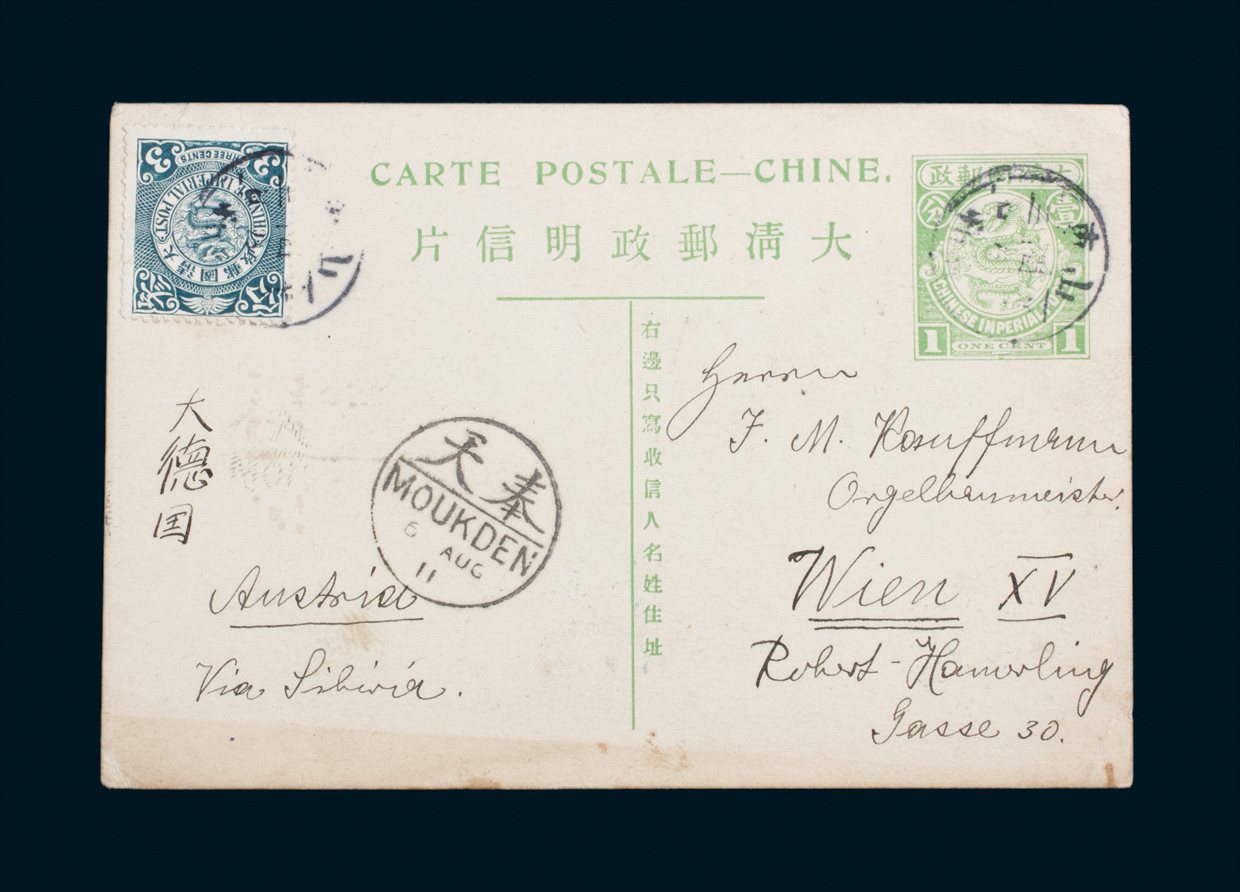 CARTE POSTALE—CHINE.
大清郵政明信片
右邊只寫收信人名姓住址
3 3
THREE CENTS
CHINESE IMPERIAL POST
大清郵國政
分
CHINESE IMPERIAL
1 ONE CENT 1
壹 分
大德国
Austria
Via Sibiria.
奉天
MOUKDEN
6 AUG
11
山
Herrn
J. M. Kauffmann
Orgelbaumeister.
Wien XV
Robert-Hamerling
Gasse 30.